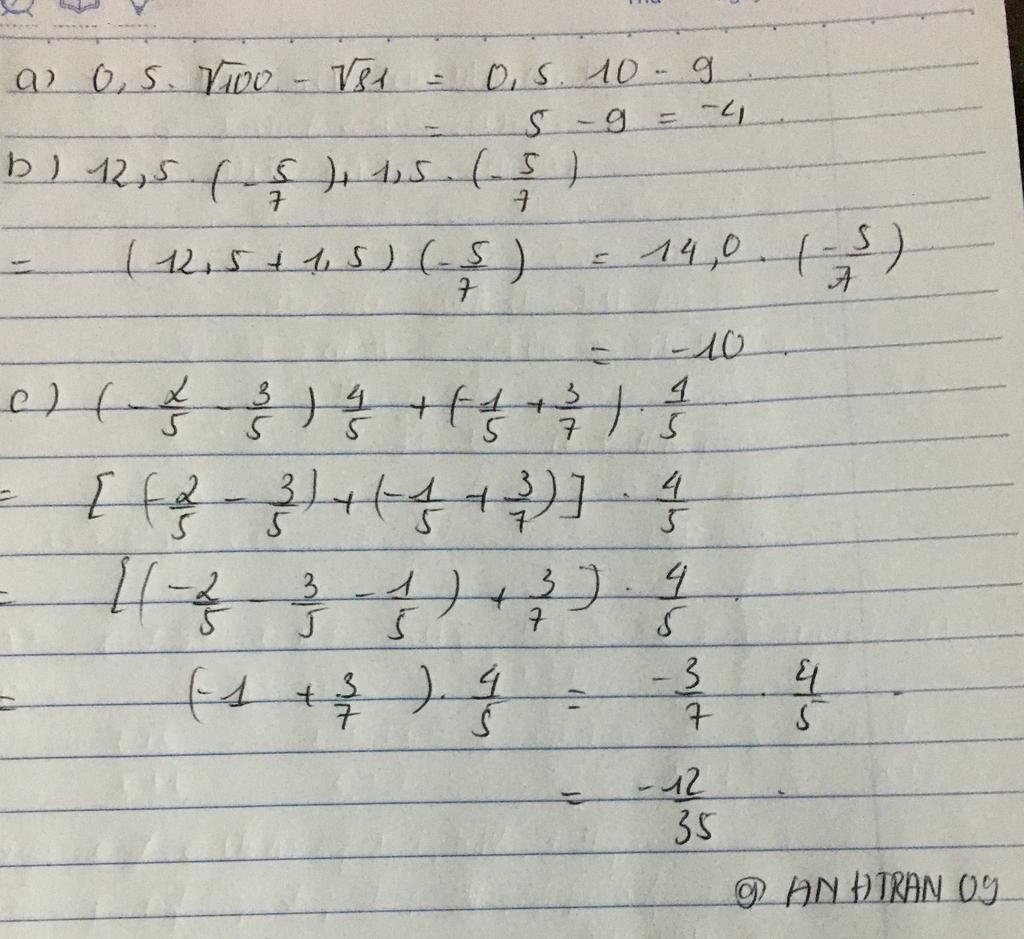 a) 0,5. √100 - √81 = 0,5. 10 - 9
= 5 - 9 = -4.
b) 12,5. (-5/7) + 1,5. (-5/7)
= (12,5 + 1,5) (-5/7) = 14,0. (-5/7)
= -10.
c) (-2/5 - 3/5) 4/5 + (-1/5 + 3/7). 4/5
= [(-2/5 - 3/5) + (-1/5 + 3/7)]. 4/5
= [(-2/5 - 3/5 - 1/5) + 3/7]. 4/5.
= (-1 + 3/7). 4/5 = -3/7. 4/5.
= -12/35.
@ ANHTRAN 09